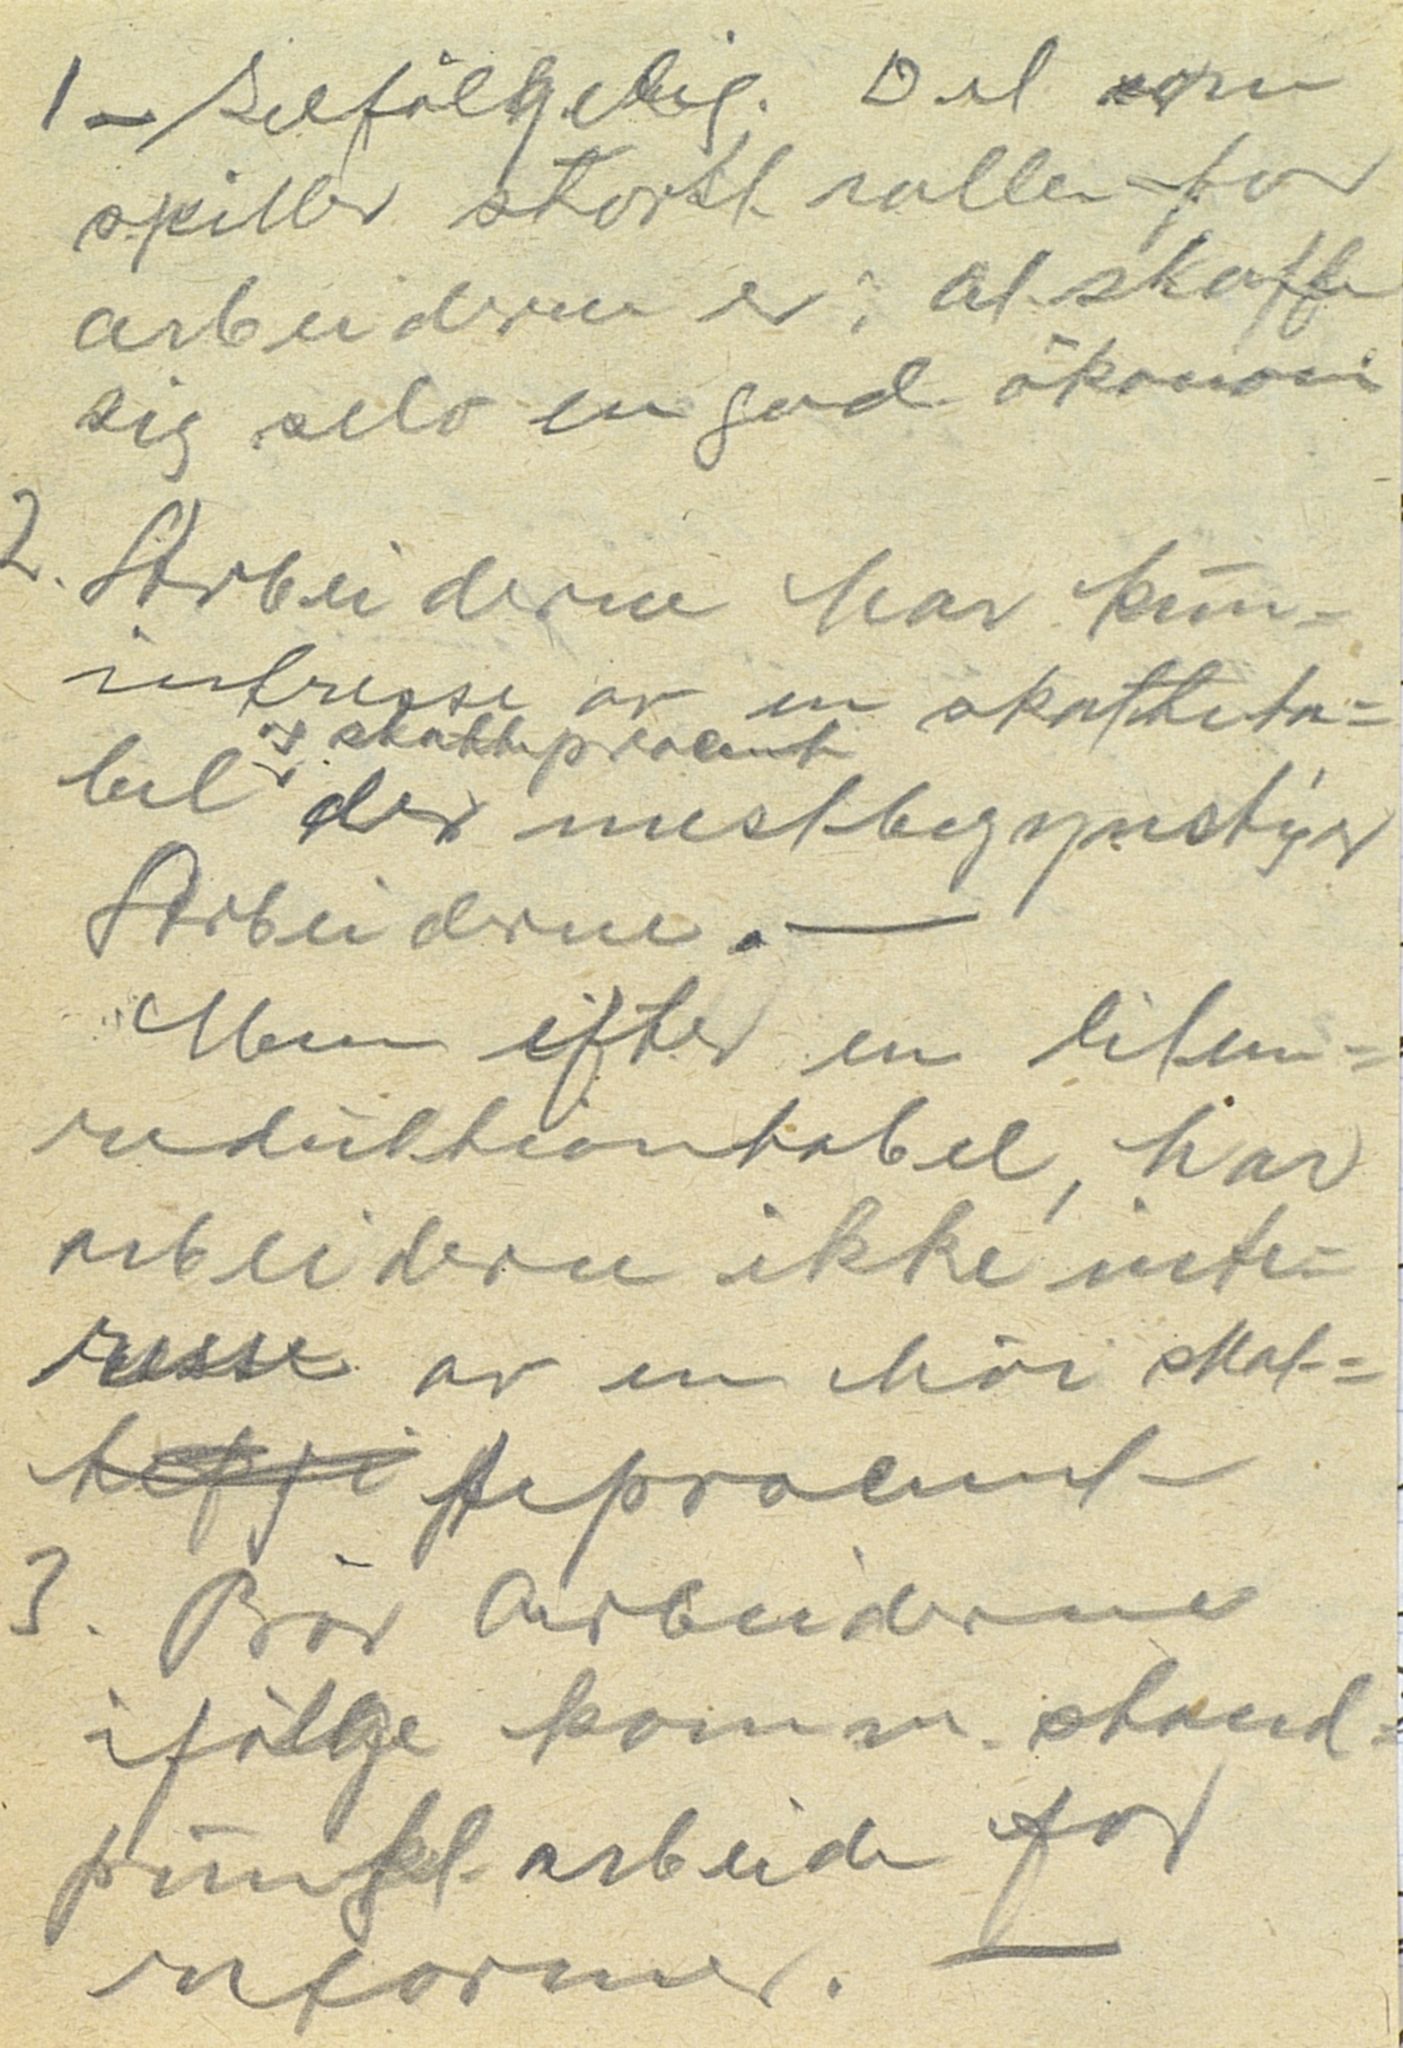 1 – Selfölgelig. Det som
spiller storst rolle for
arbeiderne er: At skaffe
sig selv en god ökonomi
2. Arbeiderne har kun-
intresse av en skatteta-
og skatteprocent
bel der mest begynstiger
Arbeiderne. —
Men efter en liten-
reduktiontabel, har
arbeiderne ikke inte-
resse av en höi skat-
teprocent
3. Bör Arbeiderne
ifölge komm. stand-
punkt arbeide for
reformer. —